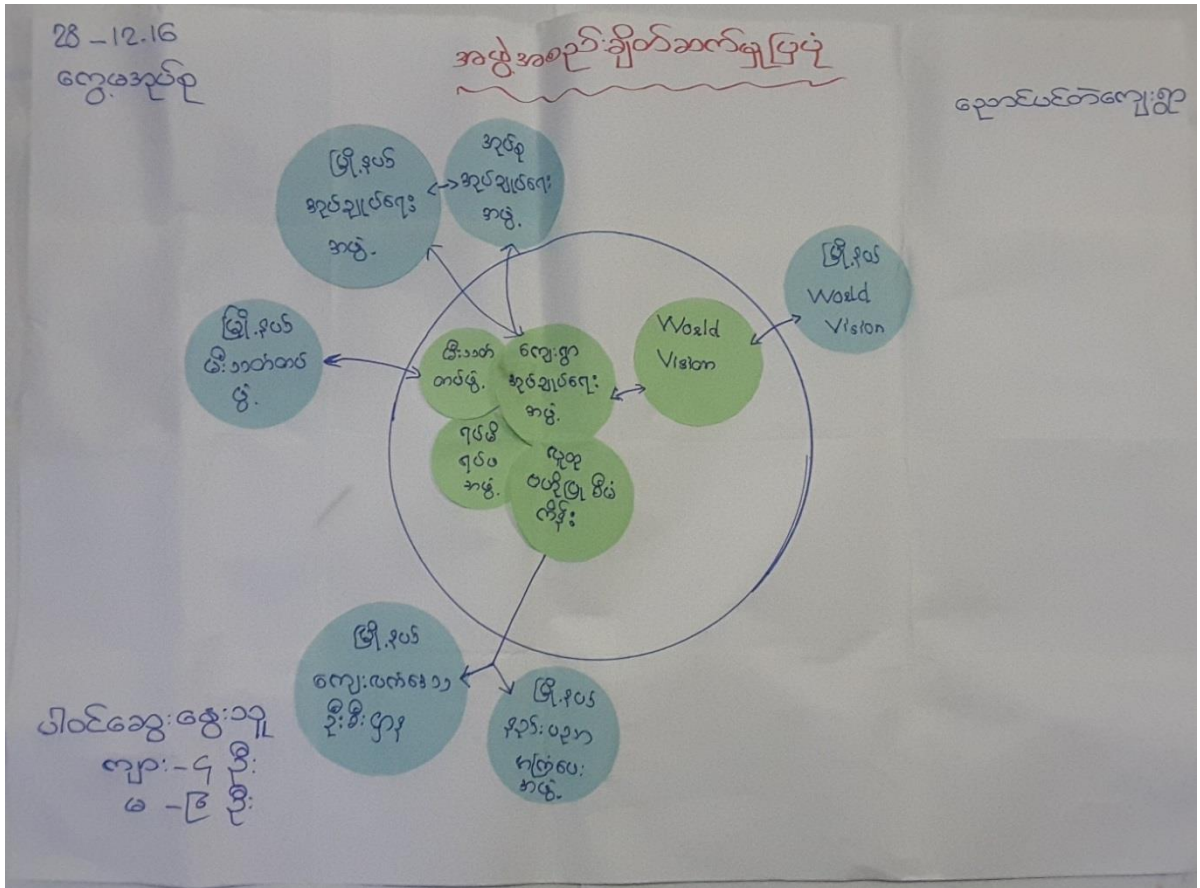 28-12-16
ကွေ့မအုပ်စု
အဖွဲ့အစည်းချိတ်ဆက်မှုပြပုံ
ညောင်ပင်တဲကျေးရွာ
မြို့နယ်
အုပ်ချုပ်ရေး
အဖွဲ့
အုပ်စု
အုပ်ချုပ်ရေး
အဖွဲ့
မြို့နယ်
World
Vision
မြို့နယ်
မီးသတ်တပ်
ဖွဲ့
မီးသတ်
တပ်ဖွဲ့
ကျေးရွာ
အုပ်ချုပ်ရေး
အဖွဲ့
World
Vision
ရပ်မိ
ရပ်ဖ
အဖွဲ့
လူထု
ဗဟိုပြု စီမံ
ကိန်း
မြို့နယ်
ကျေးလက်ဒေသ
ဦးစီးဌာန
မြို့နယ်
နည်းပညာ
အကြံပေး
အဖွဲ့
ပါဝင်ဆွေးနွေးသူ
ကျား - ၄ ဦး
မ - ၆ ဦး